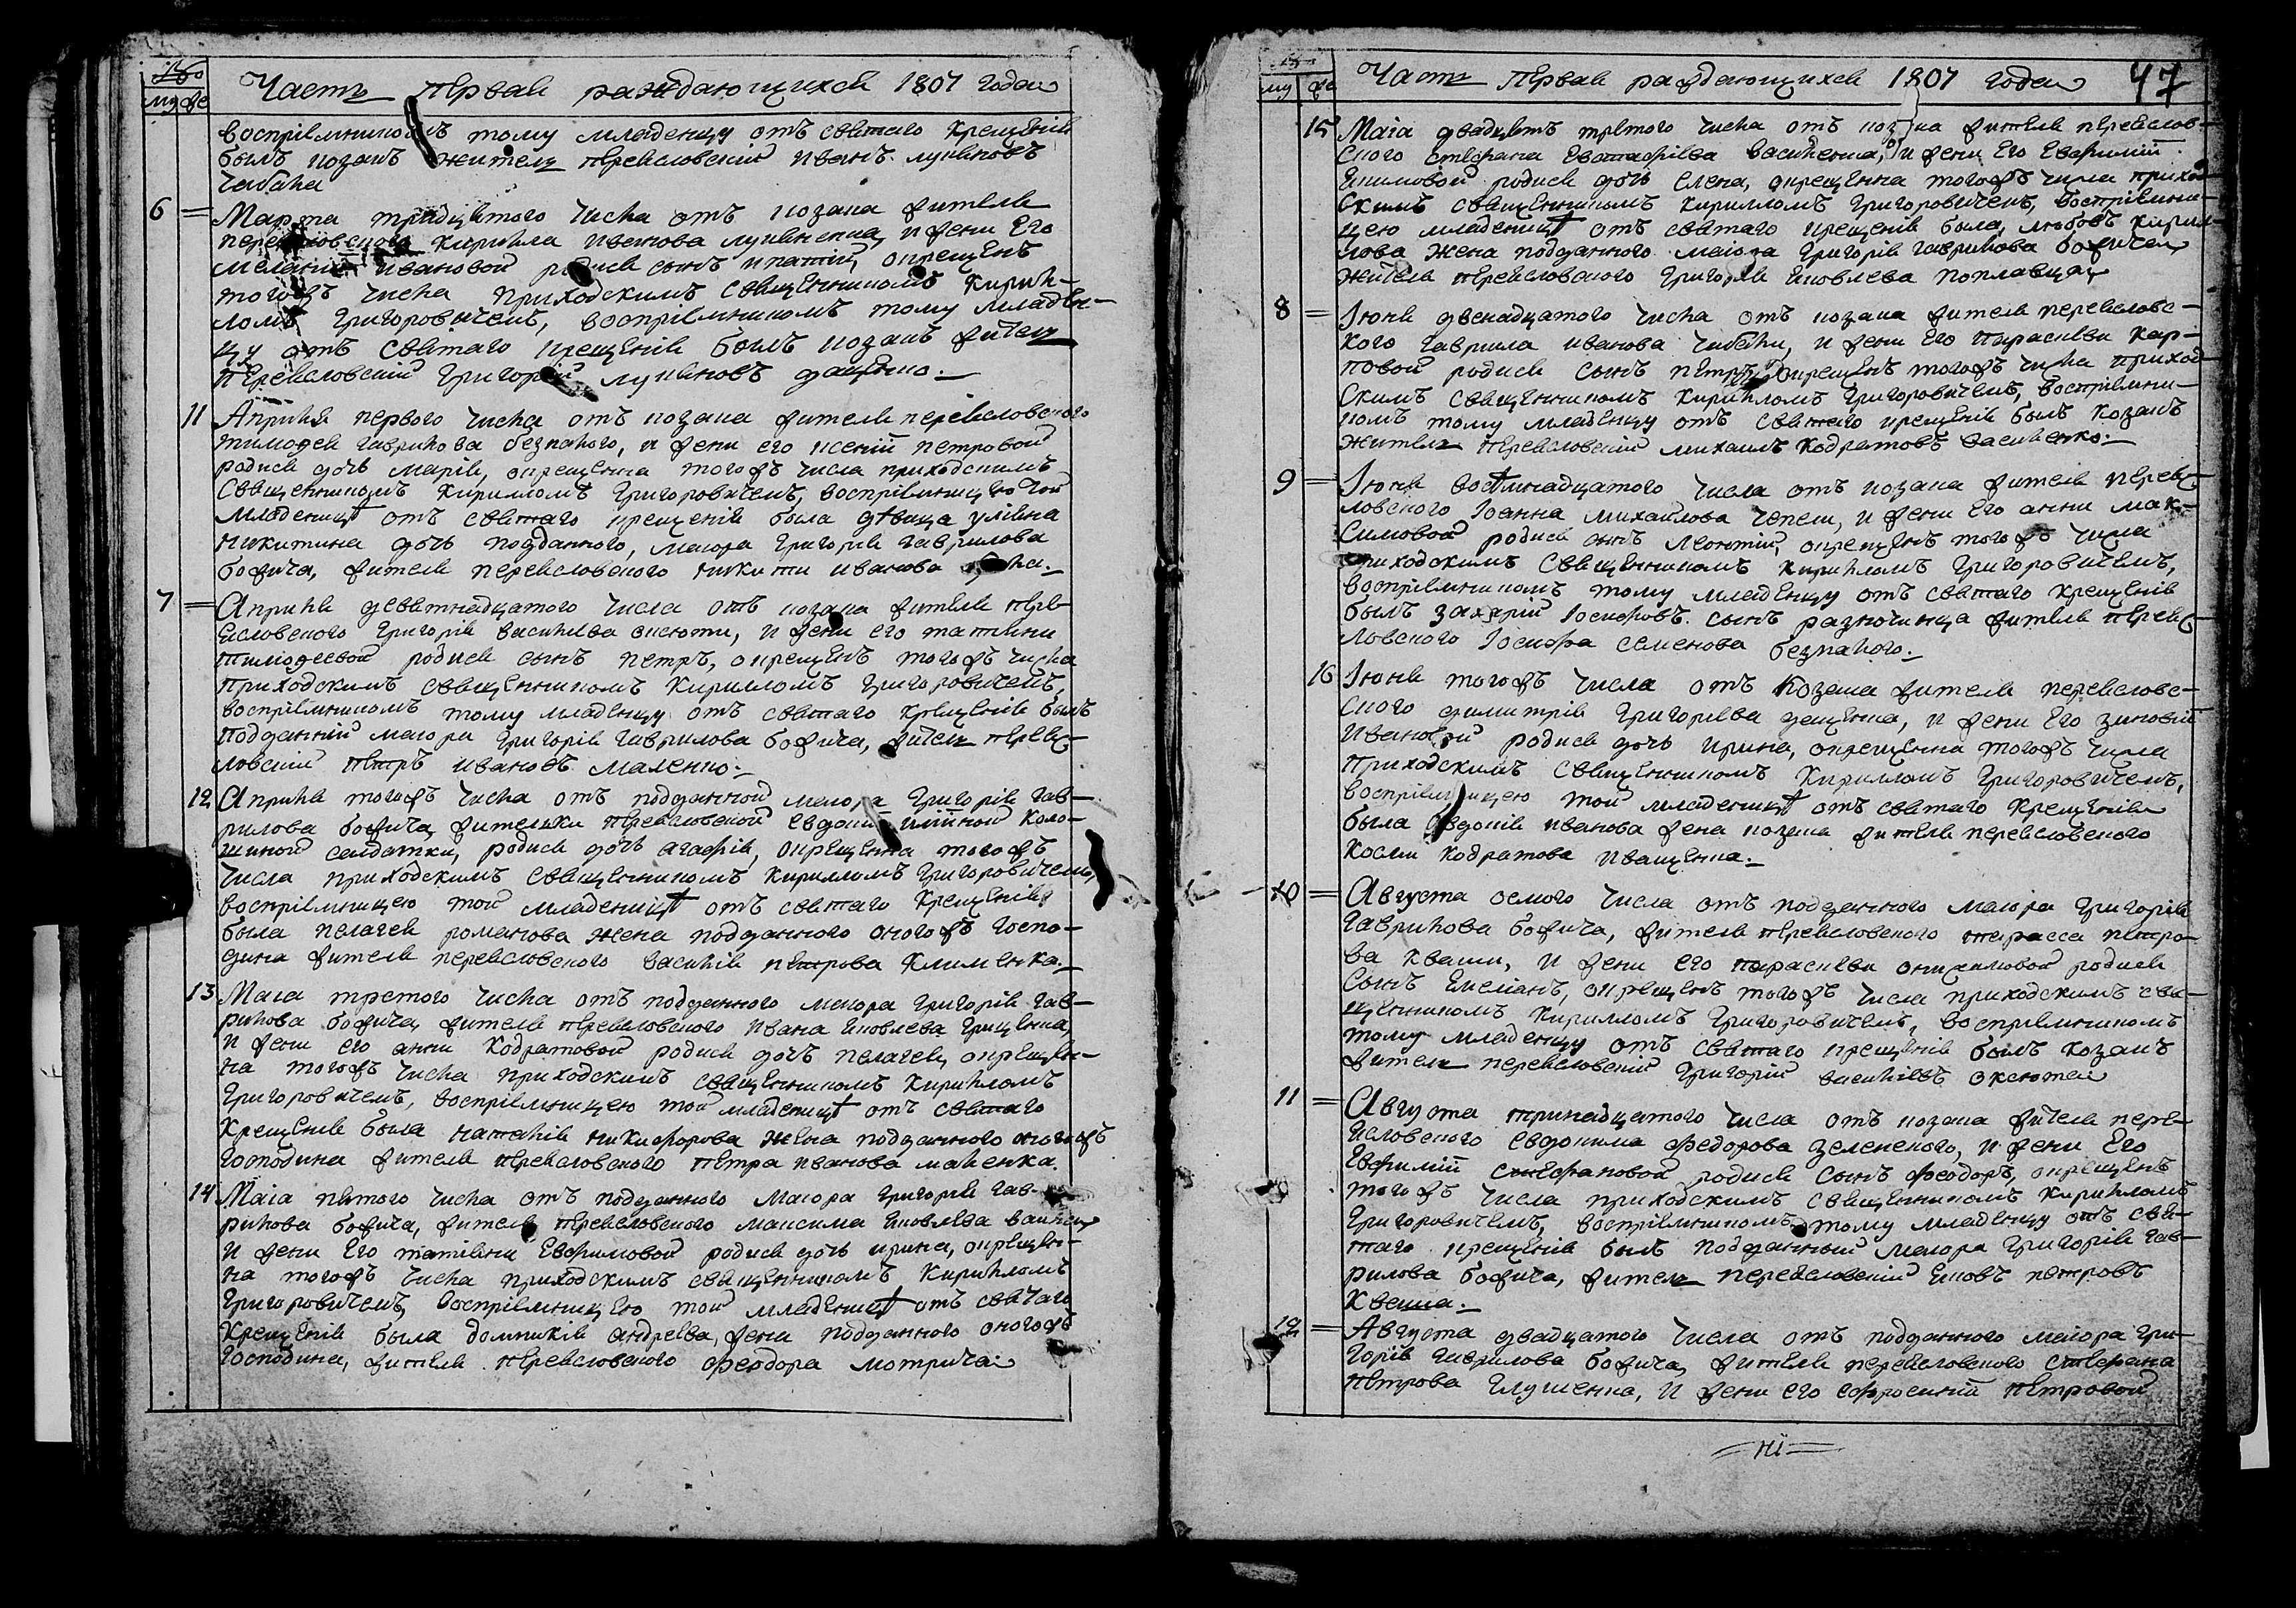 муж же
Часть Первая раждающихся 1807 Года
воспріемникомъ тому младенцу отъ святаго Крещенія
былъ козакъ житель переясловскій иванъ лукяновъ
чабана
6 = Марта тридцятого числа отъ козака жителя
переясловского кирилла иванова лукяненка, и жени Его
меланіи ивановой родися сынъ ипатій, окрещенъ
тогожъ числа приходскимъ священникомъ кирил-
ломъ Григоровичемъ, воспріемникомъ тому младен-
цу отъ святаго крещенія былъ козакъ житель
переясловскій Григорій лукяновъ
11 Априля первого числа отъ козака жителя переясловского
тимофея гаврилова безпалого, и жени его ксеніи петровой
родися дочь марія, окрещенна тогожъ числа приходскимъ
Священникомъ кирилломъ Григоровичемъ, воспріемницею той
младеницѣ отъ святаго крещенія была дѣвица уліяна
никитина дочь подданного, маюра Григорія гаврилова
божича, жителя переясловского никити иванова
7 = Априля девятнадцатого числа отъ козака жителя пере-
ясловского Григорія василіева оксюти, и жени его татіяни
тимофеевой родися сынъ петръ, окрещенъ тогожъ числа
приходскимъ священникомъ кирилломъ Григоровичемъ,
воспріемникомъ тому младенцу отъ святаго крещенія былъ
подданній маюра Григорія гаврилова божича, житель переяс-
ловскій петръ ивановъ маленко
12 Априля тогожъ числа отъ подданной маюра Григорія гав-
рилова божича, жителки переясловской коло-
шиной салдатки, родися дочь агафія, окрещенна тогожъ
числа приходскимъ священникомъ кирилломъ Григоровичемъ,
воспріемницею той младеницѣ отъ святаго Крещенія
была пелагея романова жена подданного оногожъ госпо-
дина жителя переясловского василія петрова клименка
13 Маія третого числа отъ подданного маюра Григорія гав-
рилова божича, жителя переясловского ивана яковлева грищенка,
и жени его анни кодратовой родися дочь пелагея, окрещен-
на тогожъ числа приходскимъ священникомъ кирилломъ
Григоровичемъ, воспріемницею той младеницѣ отъ святаго
крещенія была наталія никифорова жена подданного оногожъ
господина жителя переясловского петра иванова маленка.
14 Маія пятого числа отъ подданного маюра Григорія гав-
рилова божича, жителя переясловского максима яковлева
и жени Его татіяни Евфимовой родися дочь ирина, окрещен-
на тогожъ числа приходскимъ священникомъ кирилломъ
Григоровичемъ, воспріемницею той младеницѣ отъ святаго
Крещенія была домникія андреева, жени подданного оногожъ
господина, жителя переясловского феодора мотрича
муж же
Часть Первая раждающихся 1807 года 47
15 Маія двадцять третого числа отъ козака жителя переяслов-
ского стефана Евстафіева василенка, и жени Его Евфиміи
Екимовой родися дочь елена, окрещенна тогожъ числа приход-
скимъ священникомъ кирилломъ Григоровичемъ, воспріемни-
цею младеницѣ отъ святаго крещенія была, любовъ кирил-
лова жена подданного маіора Григорія гаврилова божича
жителя переясловского Григорія яковлева поплавца
8 = Іюня двенадцатого числа отъ козака жителя переяслов-
кого гаврила иванова чабана, и жени Его параскеви кар-
повой родися сынъ петръ, окрещенъ тогожъ числа приход-
скимъ священникомъ кирилломъ Григоровичемъ, воспріемни-
комъ тому младенцу отъ святаго крещенія былъ козакъ
житель переясловскій михаилъ кодратовъ василенко
9 = Іюня восѣмнадцатого числа отъ козака жителя переяс-
ловского Іоанна михайлова чепеги, и жени Его анни мак-
симовой родися сынъ леонтій, окрещенъ тогожъ числа
приходскимъ священникомъ кирилломъ Григоровичемъ,
воспріемникомъ тому младенцу отъ святаго крещенія
былъ захарій Іосифовъ сынъ разночинца жителя переяс-
ловского Іосифа семенова безпалого
16 Іюня тогожъ числа отъ козака жителя переяслов-
ского димитрія Григорієва дещенка, и жени Его зиновіи
ивановой родися дочь ирина, окрещенна тогожъ числа
приходскимъ священникомъ кирилломъ Григоровичемъ,
воспріемницею той младеницѣ отъ святаго Крещенія
была Евдокія иванова жена козака жителя переясловского
косми кодратова иващенка
10 = Августа осмого числа отъ подданного маіора Григорія
гаврилова божича, жителя переясловского тарасса петро-
ва кваши, и жени его параскеви онисимовой родися
сынъ Емеліянъ, окрещенъ тогожъ числа приходскимъ свя-
щенникомъ кирилломъ Григоровичемъ, воспріемникомъ
тому младенцу отъ святаго крещенія былъ козакъ
житель переясловскій Григорій василіевъ оксюта
11 = Августа тринадцатого числа отъ козака жителя пере-
ясловского евдокима федорова зеленского, и жени Его
Евфиміи стефановой родися сынъ феодоръ, окрещенъ
тогожъ числа приходскимъ священникомъ кирилломъ
Григоровичемъ, воспріемникомъ тому младенцу отъ свя-
таго крещенія былъ подданный маіора Григорія гав-
рилова божича, житель переясловскій яковъ петровъ
кваша
12 = Августа двадцатого числа отъ подданного маіора Гри-
горія гаврилова божича, жителя переясловского стефана
петрова глушенка, и жени его ефросиніи петровой